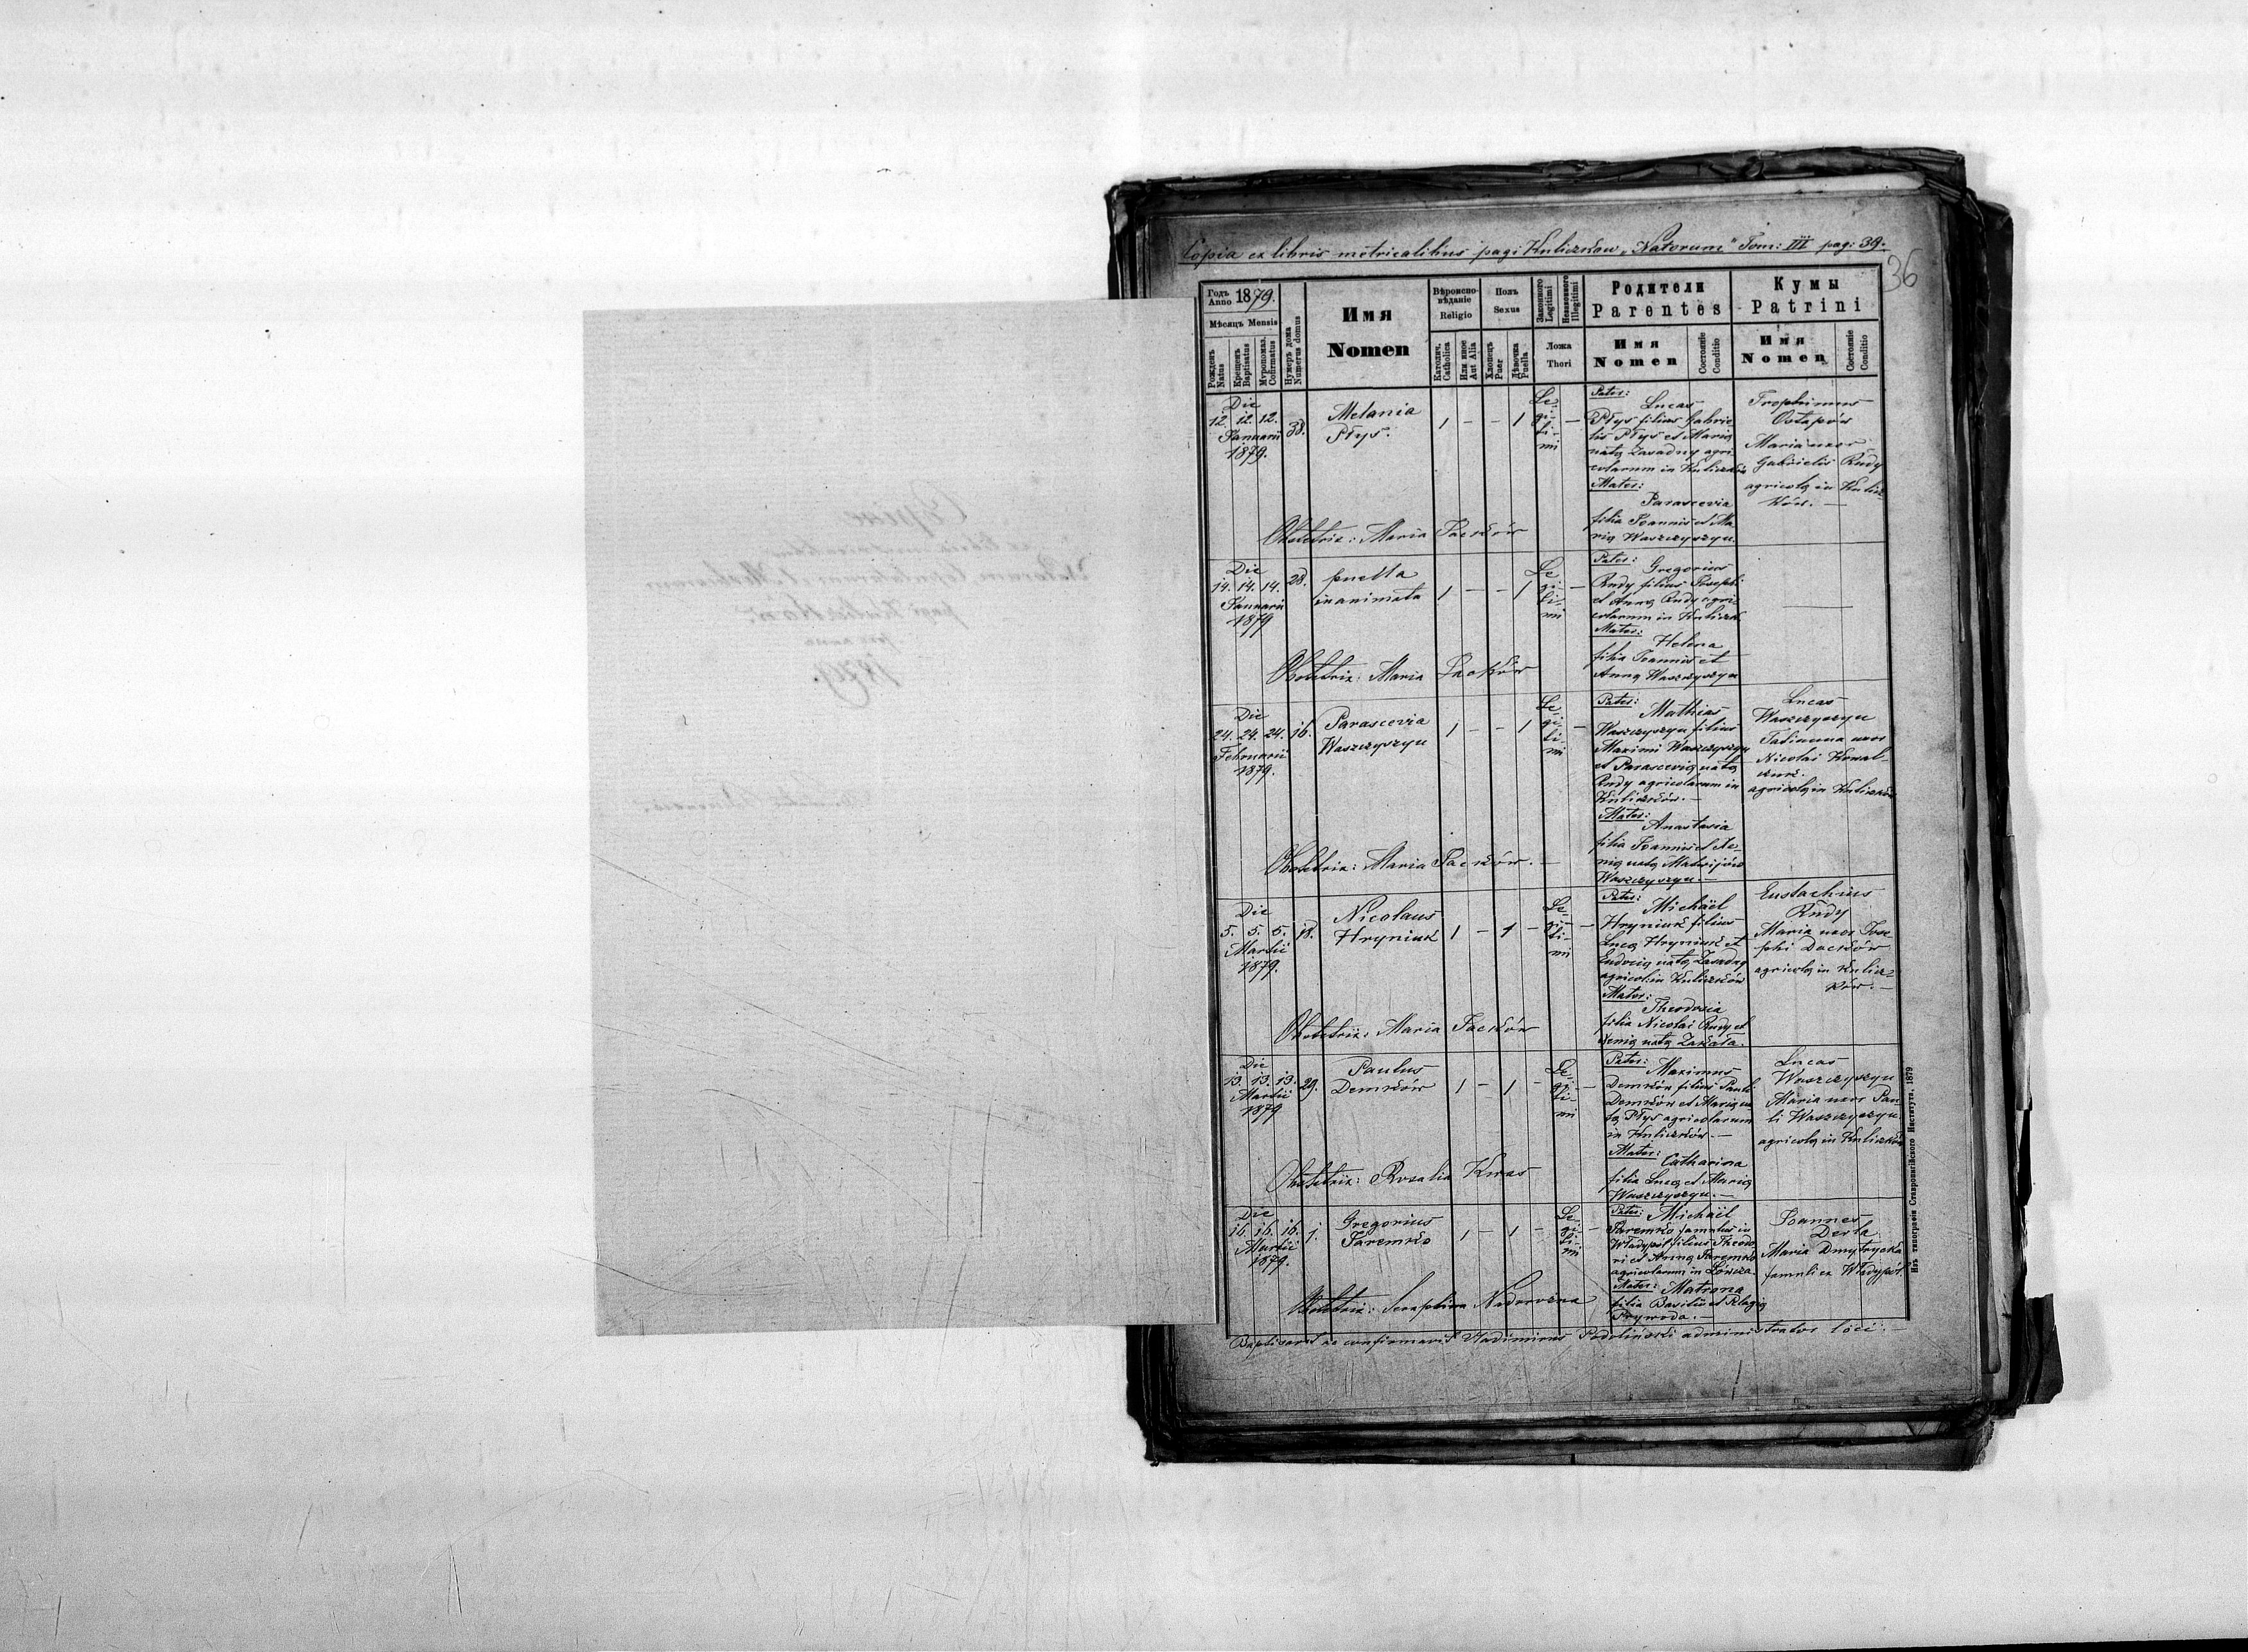 Copia ex libris metricalibus pagi Kuliczków „Natorum" Tom: III pag: 39.
36
Годъ Anno 1879.
Мѣсяцъ Mensis
Рожденъ Natus
Крещенъ Baptisatus
Мѵропомаз. Confirmatus
Нумеръ дома Numerus domus
Имя
Nomen
Вѣроиспо-
вѣданіе
Religio
Католич. Catholica
Или иное Aut Alia
Полъ
Sexus
Хлопецъ Puer
Дѣвочка Puella
Законного Legitimi
Незаконного Illegitimi
Ложа
Thori
Родители
Parentes
Имя
Nomen
Состояніе Conditio
Кумы
Patrini
Имя
Nomen
Состояніе Conditio
Die
12. 12. 12.
Januarii
1879.
38.
Melania
Płys.
1 - - 1
Le-
gi-
ti-
mi
Pater:
Lucas
Płys filius Gabrie
lis Płys et Maria
nata Zasadny agri-
colarum in Kuliczków
Mater:
Parascevia
filia Joannis et Ma
ria Waszczyszyn.
Trophimus
Ostapów
Maria uxor
Gabrielis Rudy
agricola in Kulicz-
ków. —
Obstetrix: Maria Jacków
Die
14. 14. 14.
Januarii
1879
28.
puella
inanimata
1 - - 1
Le
gi-
ti-
mi
Pater: Gregorius
Rudy filius Josephi
et Anna Rudy agri-
colarum in Kuliczk.
Mater:
Helena
filia Joannis et
Anna Waszczyszyn
Obstetrix: Maria Jacków
Die
24. 24. 24.
Februarii
1879.
16.
Parascevia
Waszczyszyn
1 - - 1
Le-
gi-
ti-
mi
Pater: Mathias
Waszczyszyn filius
Maximi Waszczyszyn
et Parascevia nata
Rudy agricolarum in
Kuliczków. —
Mater:
Anastasia
filia Joannis et Xe-
nia nata Matwijów
Waszczyszyn. —
Lucas
Waszczyszyn
Tatianna uxor
Nicolai Kowal-
czuk.
agricola in Kuliczków
Obstetrix: Maria Jacków. —
Die
5. 5. 5.
Martii
1879.
18.
Nicolaus
Hryniuk
1 - 1 -
Le-
gi-
ti-
mi
Pater: Michäel
Hryniuk filius
Luca Hryniuk et
Eudocia nata Zasadny
agricol. in Kuliczków
Mater:
Theodosia
filia Nicolai Rudy et
Xenia nata Zakała.
Eustachius
Rudy
Maria uxor Jose
phi Dacków
agricola in Kulicz-
ków. —
Obstetrix: Maria Jacków
Die
13. 13. 13.
Martii
1879
29.
Paulus
Demków
1 - 1 -
Le-
gi-
ti-
mi
Pater: Maximus
Demków filius Pauli
Demków et Maria na
ta Płys agricolarum
in Kuliczków. —
Mater:
Catharina
filia Luca et Maria
Waszczyszyn. —
Lucas
Waszczyszyn
Maria uxor Pau-
li Waszczyszyn.
agricola in Kuliczków
Obstetrix: Rosalia Kwas
Die
16. 16. 16.
Martii
1879.
1.
Gregorius
Jaremko
1 - 1 -
Le-
gi-
ti-
mi
Pater: Michäel
Jaremko famulus in
Władypol filius Theodo
ri et Anna Jaremko
agricolarum in Łówcza.
Mater: Matrona
filia Basilii et Pelagia
Prywoda. —
Joannes
Derła
Maria Dmytrycka
famuli ex Władypól.
Obstetrix: Seraphina
Baptisavit ac confirmavit Vladimirus Podoliński administrator loci.
Изъ типографіи Ставропигійского Института, 1879